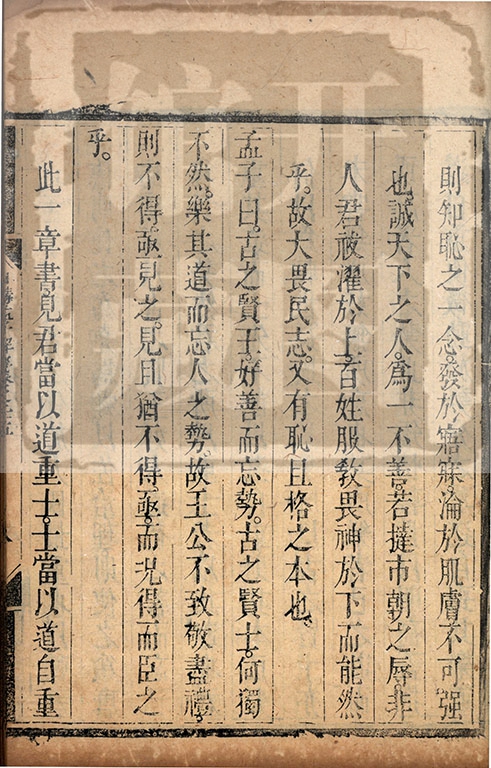 則知恥之一念發於寤寐淪於肌膚不可强
也誠天下之人為一不善若撻市朝之辱非
人君祓濯於上百姓服敎畏神於下而能然
乎故大畏民志又有恥且格之本也
孟子曰古之賢王好善而忘勢古之賢士何獨
不然樂其道而忘人之勢故王公不致敬盡禮
則不得亟見之見且猶不得亟而况得而臣之
乎
此一章書見君當以道重士士當以道自重